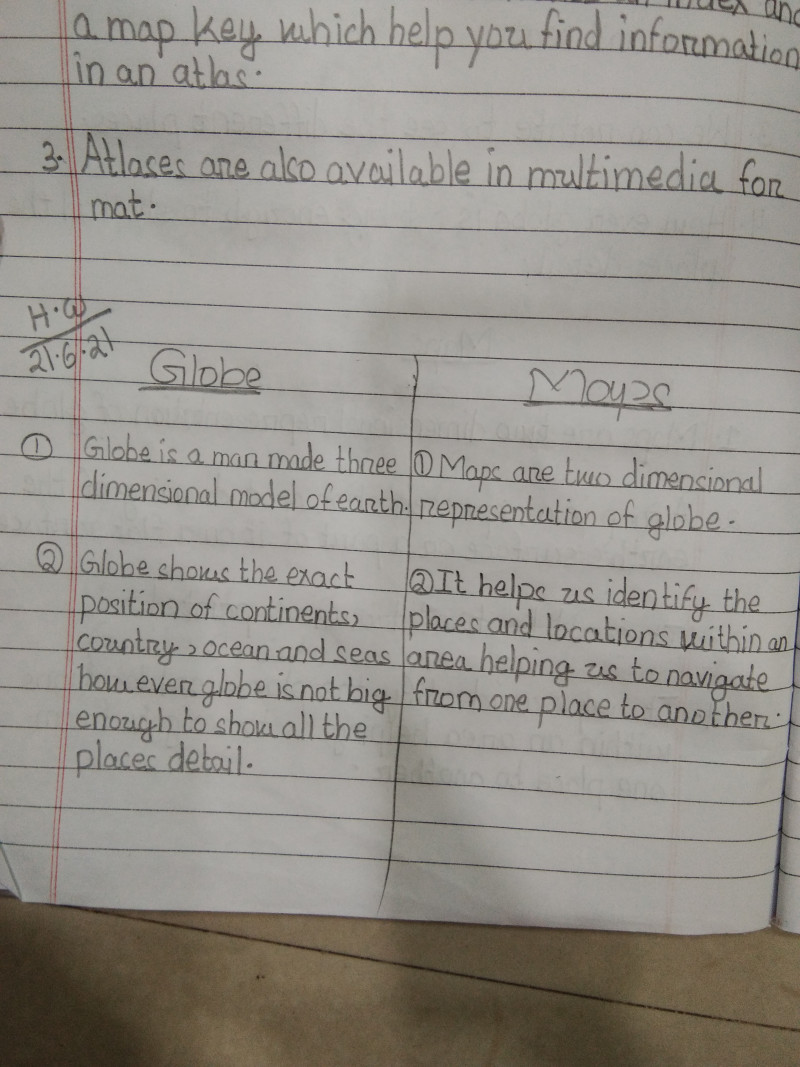 index and
a map key which help you find information
in an atlas.
3. Atlases are also available in multimedia for
mat.
H.W
21.6.21
Globe
① Globe is a man made three
dimensional model of earth.
② Globe shows the exact
position of continents,
country, ocean and seas
however globe is not big
enough to show all the
places detail.
Maps
① Maps are two dimensional
representation of globe.
② It helps us identify the
places and locations within an
area helping us to navigate
from one place to another.